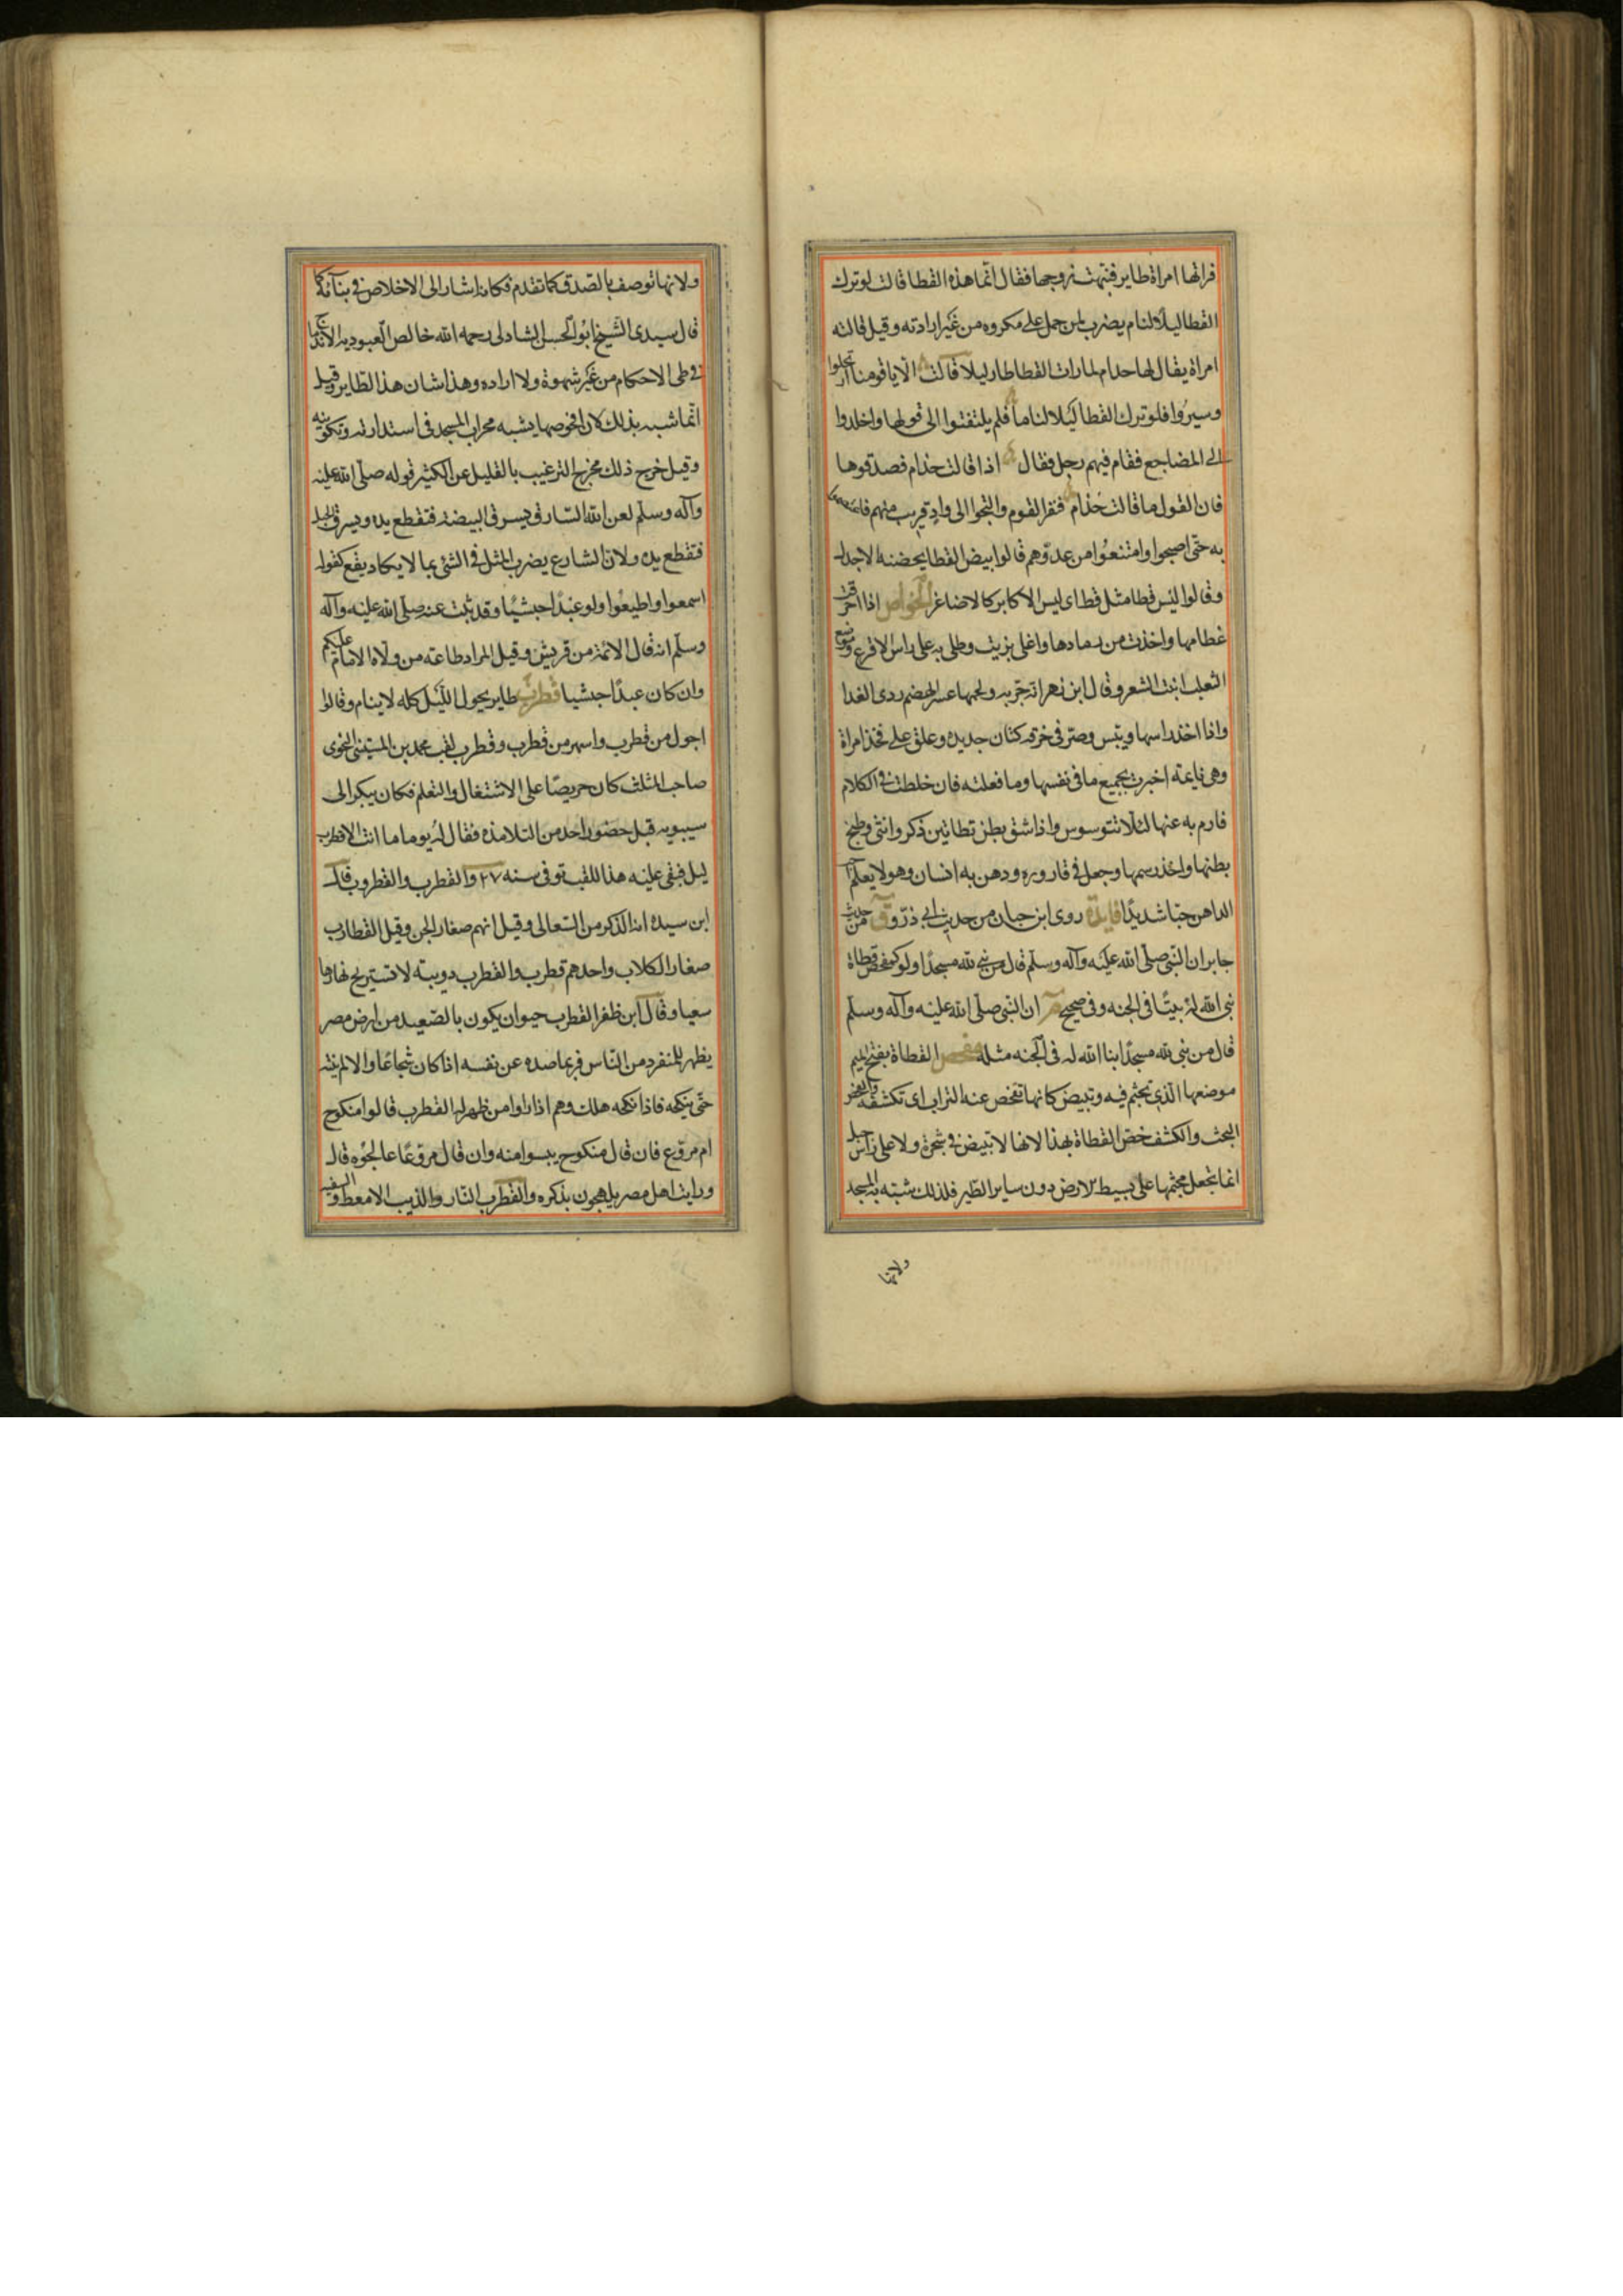 فراتها امراة طايره فنبهت زوجها فقال انما هذه القطا قالت لو ترك
القطا ليلا لنام يضرب لمن حمل على مكروه من غير ارادته وقيل قالته
امراة يقال لها حدام لما رات القطا طار ليلا قالت الا يا قومنا ارتحلوا
وسيروا فلو ترك القطا ليلا لناما فلم يلتفتوا الى قولها واخلدوا
الى المضاجع فقام فيهم رجل فقال اذا قالت حذام فصدقوها
فان القول ما قالت حذام ففر القوم والتجوا الى واد قريب منهم
به حتى اصبحوا وامتنعوا من عدوهم قالوا بيض القطا يحضنه الاجدل
وقالوا ليس قطا مثل قطاى ليس الاكابر كالاصاغر الخواص اذا احرقت
عظامها واخذت من رمادها واغلى بزيت وطلى به على راس الاقرع وموضع
الثعلب انبت الشعر وقال ابن زهر انه جربه ولحمها عسر الهضم ردى الغدا
واذا اخذ راسها ويبس وصر فى خرقه كتان جديده وعلق على فخذ امراة
وهى نايمة اخبرت بجميع ما فى نفسها وما فعلته فان خلطت فى الكلام
فارم به عنها لئلا تتوسوس واذا شق بطن قطاتين ذكر وانثى وطبخ
بطنها واخذ دسمها وجعل فى قاروره ودهن به انسان وهو لا يعلم احب
الداهن حبا شديدا فايدة روى ابن حبان من حديث ابى ذر وق من حديث
جابر ان النبى صلى الله عليه وآله وسلم قال من بنى لله مسجدا ولو كمفحص قطاة
بنى الله له بيتا فى الجنه وفى صحيح م ان النبى صلى الله عليه وآله وسلم
قال من بنى لله مسجدا ابنا الله له فى الجنه مثله مفحص القطاة بفتح الميم
موضعها الذى تجثم فيه وتبيض كانها تفحص عنه التراب اى تكشفه والفحص
البحث والكشف خص القطاة بهذا لانها لا تبيض فى شجرة ولا على راس جبل
انما تجعل مجثمها على بسيط الارض دون ساير الطير فلذلك شبه به المسجد
ولانها
ولانها توصف بالصدق كما تقدم فكانه اشار الى الاخلاص فى بنآئه كما
قال سيدى الشيخ ابو الحسن الشاذلى رحمه الله خالص العبوديه الاندماج
فى طى الاحكام من غير شهوة ولا اراده وهذا شان هذا الطاير وقيل
انما شبه بذلك لان افحوصها يشبه محراب المسجد فى استدارته وتكوينه
وقيل خرج ذلك مخرج الترغيب بالقليل عن الكثير قوله صلى الله عليه
وآله وسلم لعن الله السارق يسرق البيضه فتقطع يده ويسرق الحبل
فتقطع يده ولان الشارع يضرب المثل فى الشئ بما لا يكاد يقع كقوله
اسمعوا واطيعوا ولو عبدا حبشيا وقد ثبت عنه صلى الله عليه وآله
وسلم انه قال الائمة من قريش وقيل المراد طاعته من ولاه الامام عليكم
وان كان عبدا حبشيا قطرب طاير يجول الليل كله لا ينام وقالوا
اجول من قطرب واسهر من قطرب وقطرب لقب محمد بن المستنير النحوى
صاحب المثلث كان حريصا على الاشتغال والتعلم فكان يبكر الى
سيبويه قبل حضور احد من التلامذه فقال له يوما ما انت الا قطرب
ليل فبقى عليه هذا اللقب توفى سنه ٢٧ والقطرب والقطروب قال
ابن سيده انه الذكر من السعالى وقيل انهم صغار الجن وقيل القطارب
صغار الكلاب واحدهم قطرب والقطرب دويبة لا تستريح نهارها
سعيا وقال ابن ظفر القطرب حيوان يكون بالصعيد من ارض مصر
يظهر للمنفرد من الناس فربما صده عن نفسه اذا كان شجاعا والا لم ينته
حتى ينكحه فاذا نكحه هلك وهم اذا راوا من ظهر له القطرب قالوا منكوح
ام مروع فان قال منكوح يبسوا منه وان قال مروعا عالجوه قال
ورايت اهل مصر يلهجون بذكره والقطرب الفار والذيب الامعط والسفيه